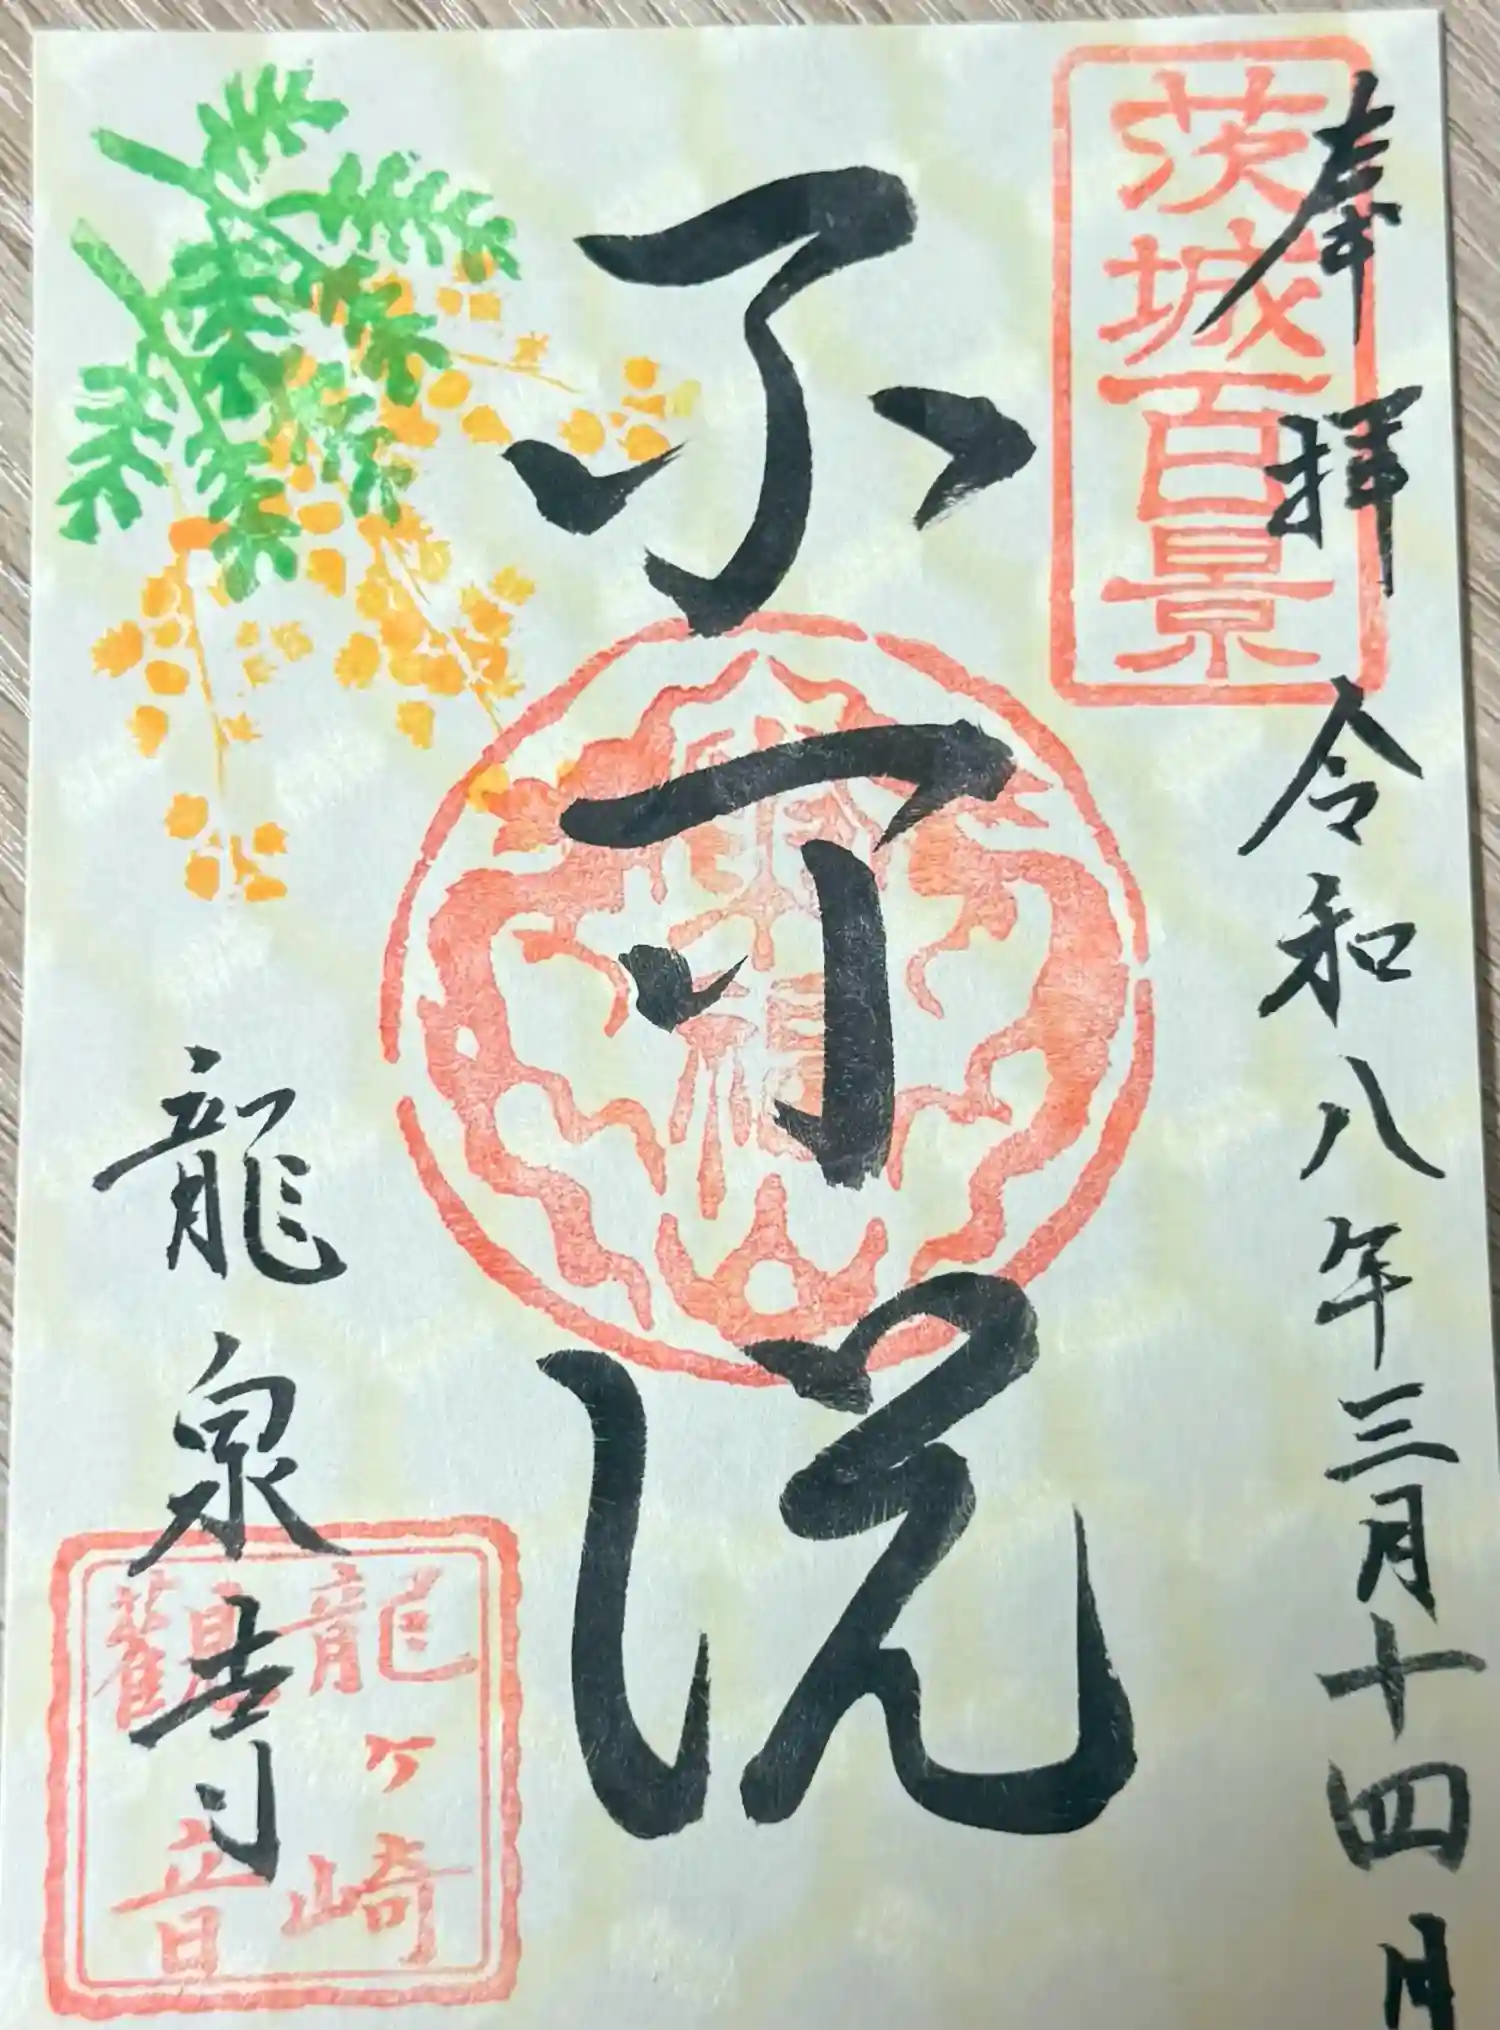 奉拝 令和八年三月十四日
茨城百景
不可説
龍泉寺
龍ヶ崎
觀音